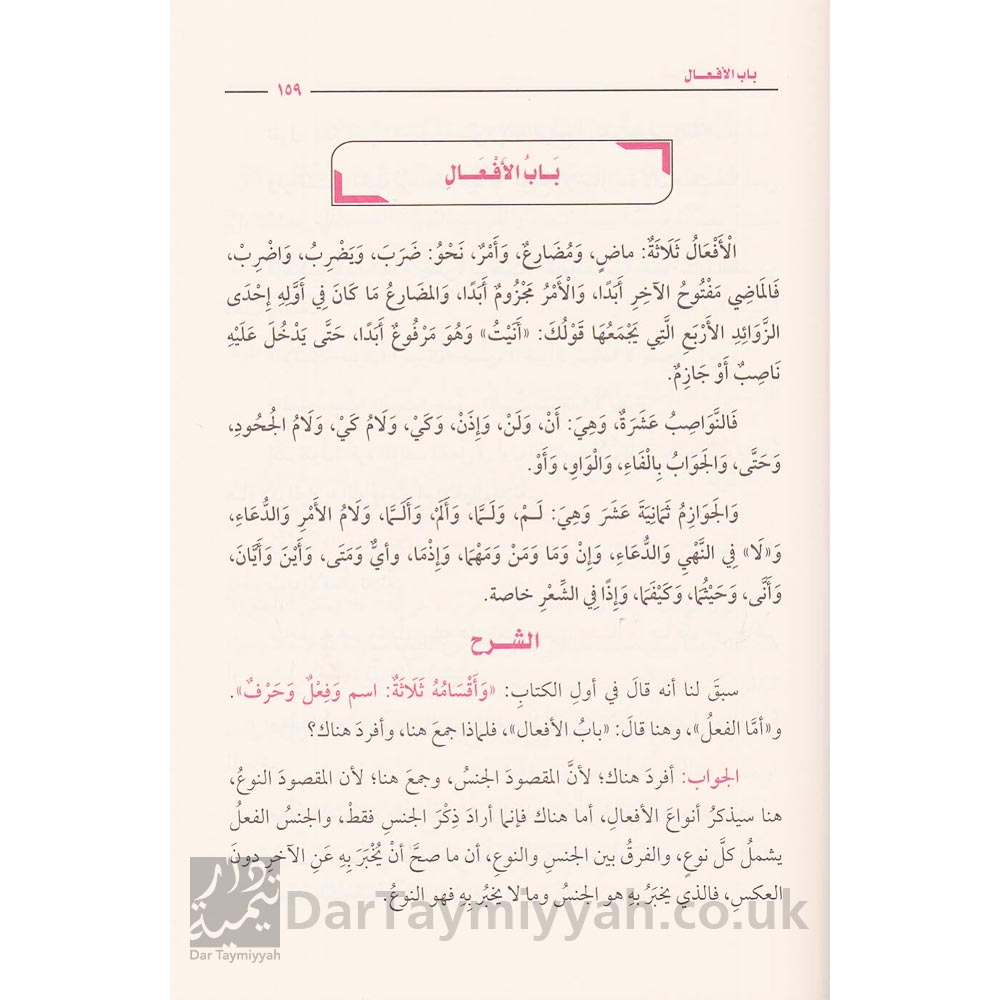 باب الأفعـال
١٥٩
بَابُ الأَفْعَـالِ
الْأَفْعَالُ ثَلَاثَةٌ: ماضٍ، وَمُضَارِعٌ، وَأَمْرٌ، نَحْوُ: ضَرَبَ، وَيَضْرِبُ، وَاضْرِبْ،
فَالمَاضِي مَفْتُوحُ الآخِرِ أَبَدًا، وَالْأَمْرُ مَجْزُومٌ أَبَدًا، وَالمضَارِعُ مَا كَانَ فِي أَوَّلِهِ إِحْدَى
الزَّوَائِدِ الأَرْبَعِ الَّتِي يَجْمَعُهَا قَوْلُكَ: «أَنَيْتُ» وَهُوَ مَرْفُوعٌ أَبَدًا، حَتَّى يَدْخُلَ عَلَيْهِ
نَاصِبٌ أَوْ جَازِمٌ.
فَالنَّوَاصِبُ عَشَرَةٌ، وَهِيَ: أَنْ، وَلَنْ، وَإِذَنْ، وَكَيْ، وَلَامُ كَيْ، وَلَامُ الجُحُودِ،
وَحَتَّى، وَالجَوَابُ بِالْفَاءِ، وَالْوَاوِ، وَأَوْ.
وَالجَوَازِمُ ثَمَانِيَةَ عَشَرَ وَهِيَ: لَـمْ، وَلَـمَّا، وَأَلَمْ، وَأَلَـمَّا، وَلَامُ الأَمْرِ وَالدُّعَاءِ،
وَ«لَا» فِي النَّهْيِ وَالدُّعَاءِ، وَإِنْ وَمَا وَمَنْ وَمَهْمَا، وَإِذْمَا، وَأيٌّ وَمَتَى، وَأَيْنَ وَأَيَّانَ،
وَأَنَّى، وَحَيْثُمَا، وَكَيْفَمَا، وَإِذًا فِي الشِّعْرِ خاصة.
الشـــرح
سبقَ لنا أنه قالَ في أولِ الكتابِ: «وَأَقْسَامُهُ ثَلَاثَةٌ: اسم وَفِعْلٌ وَحَرْفٌ».
و«أمَّا الفعلُ»، وهنا قالَ: «بابُ الأفعال»، فلماذا جمعَ هنا، وأفردَ هناك؟
الجواب: أفردَ هناك؛ لأنَّ المقصودَ الجنسُ، وجمعَ هنا؛ لأن المقصودَ النوعُ،
هنا سيذكرُ أنواعَ الأفعالِ، أما هناك فإنما أرادَ ذِكْرَ الجنسِ فقطْ، والجنسُ الفعلُ
يشملُ كلَّ نوعٍ، والفرقُ بين الجنسِ والنوعِ، أن ما صحَّ أنْ يُخْبَرَ بِهِ عَنِ الآخرِ دونَ
العكسِ، فالذي يخبَرُ بِهِ هو الجنسُ وما لا يخبُر بِهِ فهو النوعُ.
دار تيمية
Dar Taymiyyah
DarTaymiyyah.co.uk